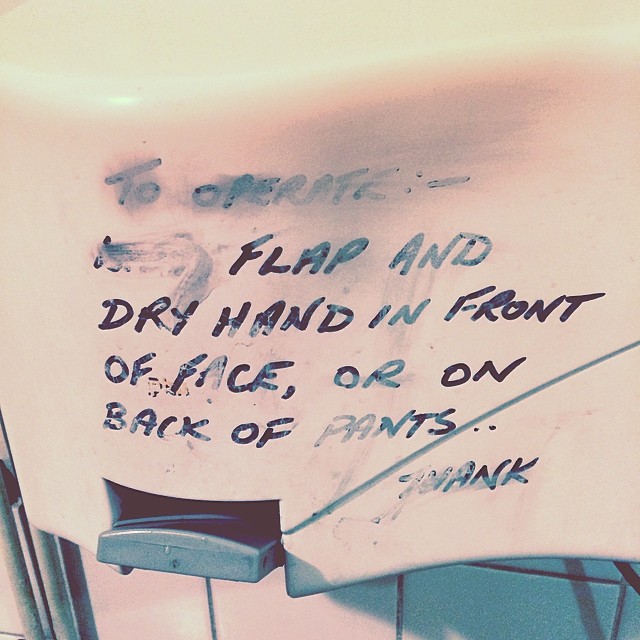 TO OPERATE :-
FLAP AND
DRY HAND IN FRONT
OF FACE, OR ON
BACK OF PANTS..
THANK